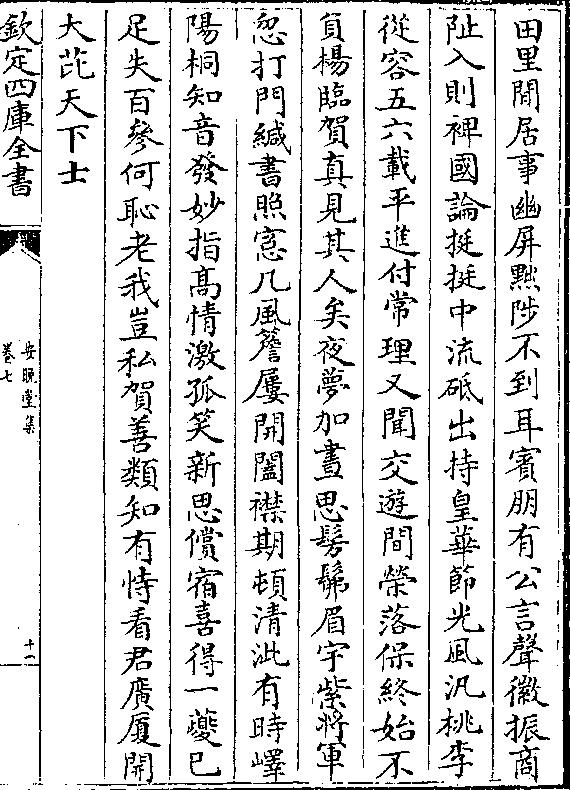 田里閒居事幽屏黜陟不到耳賓朋有公言聲徽振商
阯入則裨國論挺挺中流砥出持皇華節光風汎桃李
從容五六載平進付常理又聞交遊間榮落保終始不
負楊臨賀真見其人矣夜夢加晝思髣髴眉宇紫將軍
忽打門緘書照窓几風簷屢開闔襟期頓清泚有時嶧
陽桐知音發妙指髙情激孤笑新思償宿喜得一夔已
足失百參何恥老我豈私賀善類知有恃看君廣厦開
大芘天下士
欽定四庫全書
安晚堂集
卷七
十一